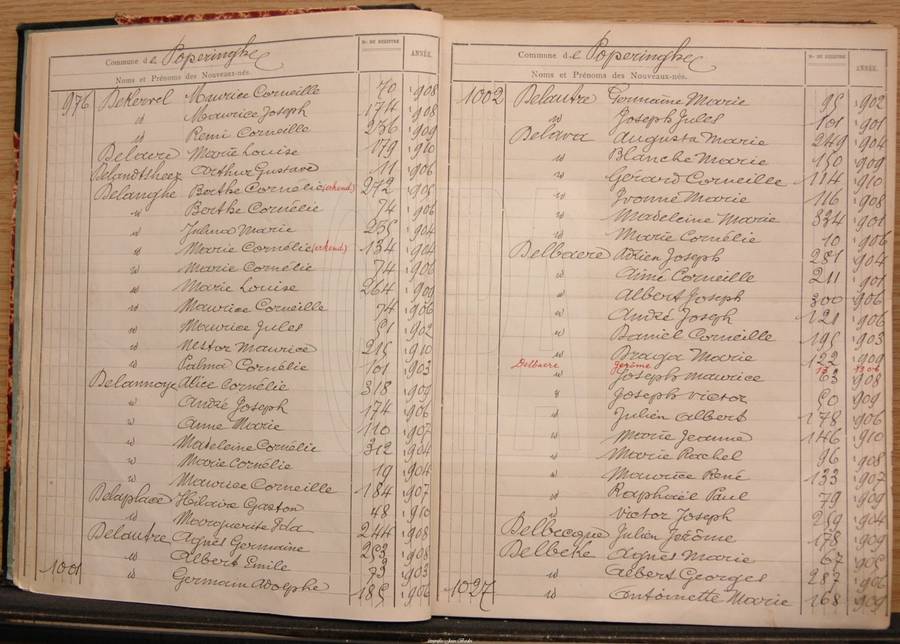 Commune de Poperinghe
Nos DE REGISTRE
ANNÉE.
Noms et Prénoms des Nouveaux-nés.
976 DeKervel Maurice Corneille 70 1908
id Maurice Joseph 174 1908
id Remi Corneille 236 1909
Delaere Marie Louise 179 1910
Delandtsheer Arthur Gustave 11 1906
Delanghe Berthe Cornélie (erkend.) 272 1905
id Berthe Cornélie 74 1906
id Julma Marie 255 1904
id Marie Cornélie (erkend.) 134 1904
id Marie Cornélie 74 1906
id Marie Louise 264 1900
id Maurice Corneille 74 1906
id Maurice Jules 51 1902
id Nestor Maurice 215 1910
id Palma Cornélie 101 1903
Delannoye Alice Cornélie 318 1909
id André Joseph 174 1906
id Anne Marie 110 1907
id Madeleine Cornélie 312 1904
id Marie Cornélie 19 1904
id Maurice Corneille 184 1907
Delaplace Hilaire Gaston 48 1910
id Marguerite Ida 244 1908
Delautre Agnès Germaine 253 1908
id Albert Emile 73 1903
1001 id Germain Adolphe 185 1906
Commune de Poperinghe
Nos DE REGISTRE
ANNÉE.
Noms et Prénoms des Nouveaux-nés.
1002 Delautre Germaine Marie 95 1902
id Joseph Jules 101 1901
Delava Augusta Marie 249 1904
id Blanche Marie 150 1909
id Gérard Corneille 114 1910
id Yvonne Marie 116 1908
id Madeleine Marie 334 1901
id Marie Cornélie 10 1906
Delbaere Adrien Joseph 281 1904
id Aimé Corneille 211 1901
id Albert Joseph 300 1906
id André Joseph 121 1906
id Daniel Corneille 195 1903
id Marie 122 1909
Delbaere Jérôme 17
id Joseph Maurice 63 1908
id Joseph Victor 50 1909
id Julien Albert 178 1906
id Marie Jeanne 146 1910
id Marie Rachel 96 1908
id Maurice René 133 1907
id Raphaël Paul 79 1909
id Victor Joseph 259 1904
Delbecque Julien Jérôme 178 1909
Delbeke Agnes Marie 67 1905
id Albert Georges 287 1906
1027 id Antoinette Marie 168 1909